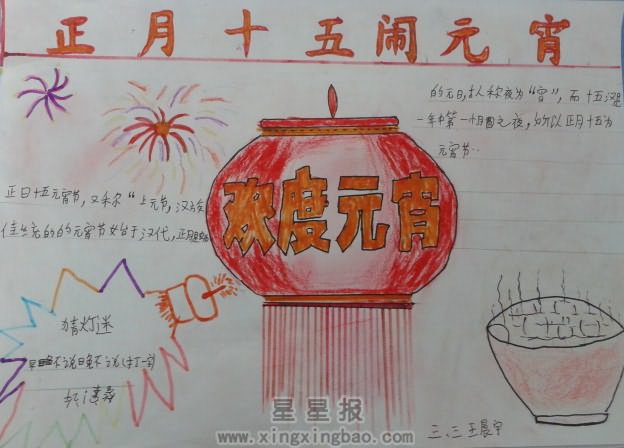 正月十五闹元宵
欢度元宵
正日十五元宵节,又称"上元节,汉族
传统的的元宵节始于汉代,正月是农历
的元日,古人称夜为"宵",而十五
一年中第一个月圆之夜,所以正月十五为
元宵节…
猜灯迷
不说晚不说(打一字)
三.三王晨宇
星星报
www.xingxingbao.com